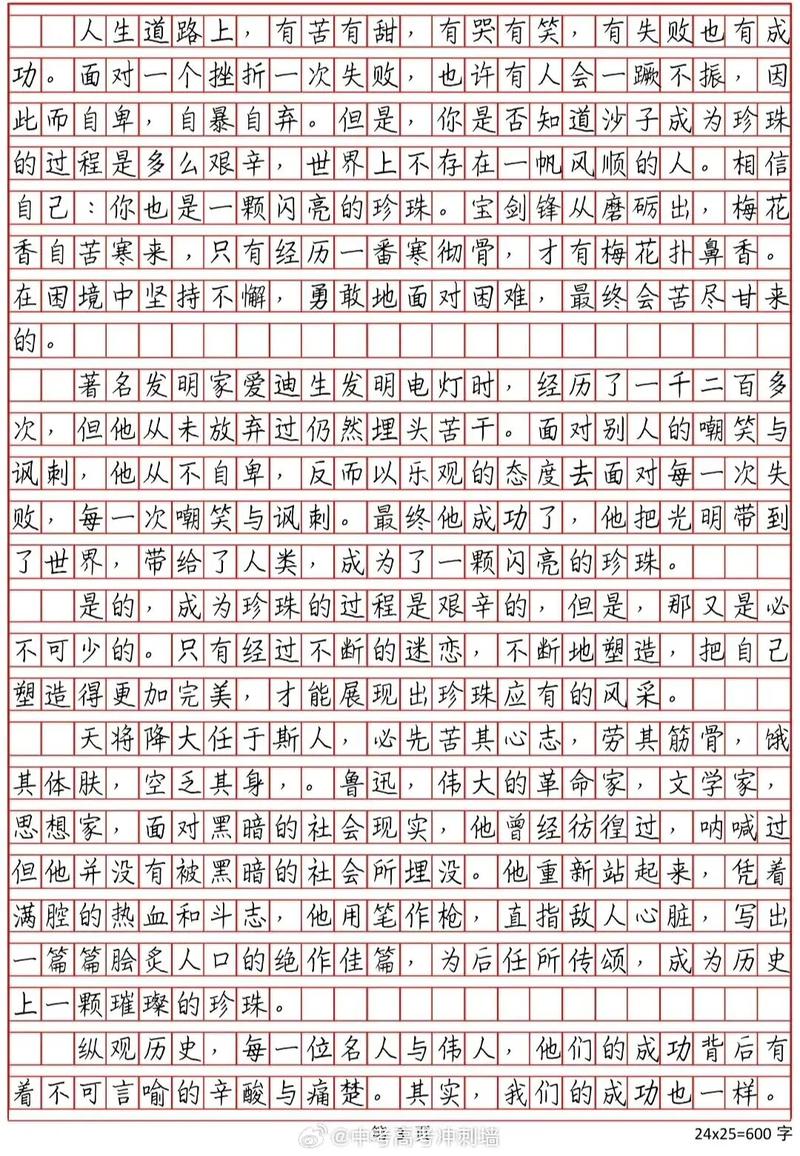 人生道路上，有苦有甜，有哭有笑，有失败也有成
功。面对一个挫折一次失败，也许有人会一蹶不振，因
此而自卑，自暴自弃。但是，你是否知道沙子成为珍珠
的过程是多么艰辛，世界上不存在一帆风顺的人。相信
自己：你也是一颗闪亮的珍珠。宝剑锋从磨砺出，梅花
香自苦寒来，只有经历一番寒彻骨，才有梅花扑鼻香。
在困境中坚持不懈，勇敢地面对困难，最终会苦尽甘来
的。
著名发明家爱迪生发明电灯时，经历了一千二百多
次，但他从未放弃过仍然埋头苦干。面对别人的嘲笑与
讽刺，他从不自卑，反而以乐观的态度去面对每一次失
败，每一次嘲笑与讽刺。最终他成功了，他把光明带到
了世界，带给了人类，成为了一颗闪亮的珍珠。
是的，成为珍珠的过程是艰辛的，但是，那又是必
不可少的。只有经过不断的迷恋，不断地塑造，把自己
塑造得更加完美，才能展现出珍珠应有的风采。
天将降大任于斯人，必先苦其心志，劳其筋骨，饿
其体肤，空乏其身，。鲁迅，伟大的革命家，文学家，
思想家，面对黑暗的社会现实，他曾经彷徨过，呐喊过
但他并没有被黑暗的社会所埋没。他重新站起来，凭着
满腔的热血和斗志，他用笔作枪，直指敌人心脏，写出
一篇篇脍炙人口的绝作佳篇，为后任所传颂，成为历史
上一颗璀璨的珍珠。
纵观历史，每一位名人与伟人，他们的成功背后有
着不可言喻的辛酸与痛楚。其实，我们的成功也一样。
@中考高考冲刺墙
24x25=600 字